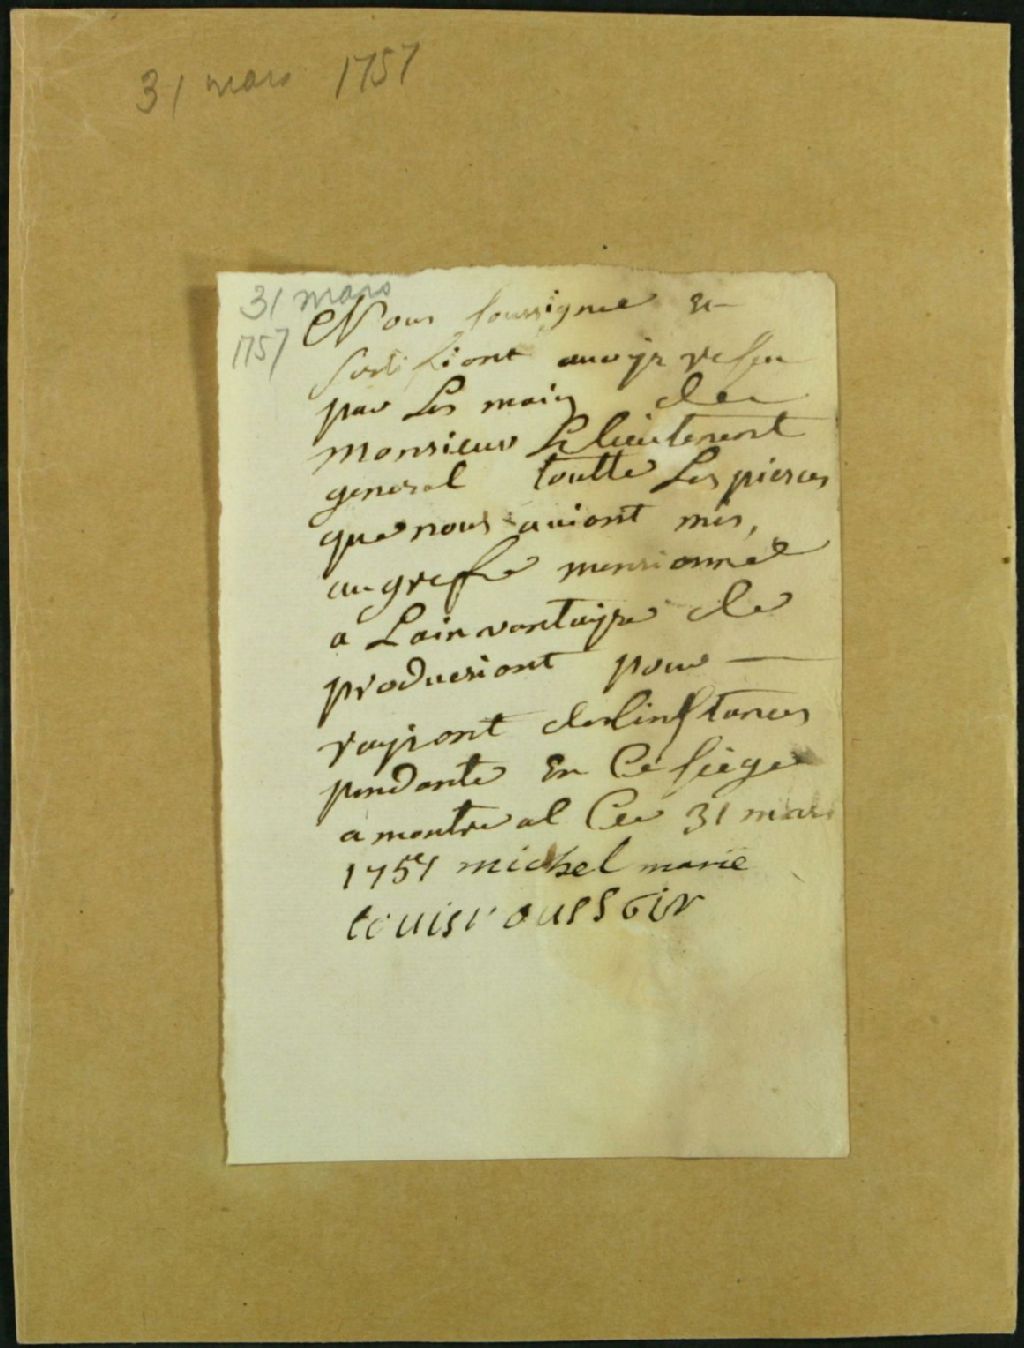 31 mars 1757
31 mars
1757
Nous soussigne &
sertifiont auoyr resu
par Les main de
monsieur Le lieutenent
general toutte Les pieses
que nous auiont mis,
au greffe mensionnée
a Lainvantayre de
producsiont pour
rayson de linstances
pendante En Ce siege
a montreal Ce 31 mars
1757 michel marie
louis roussoir